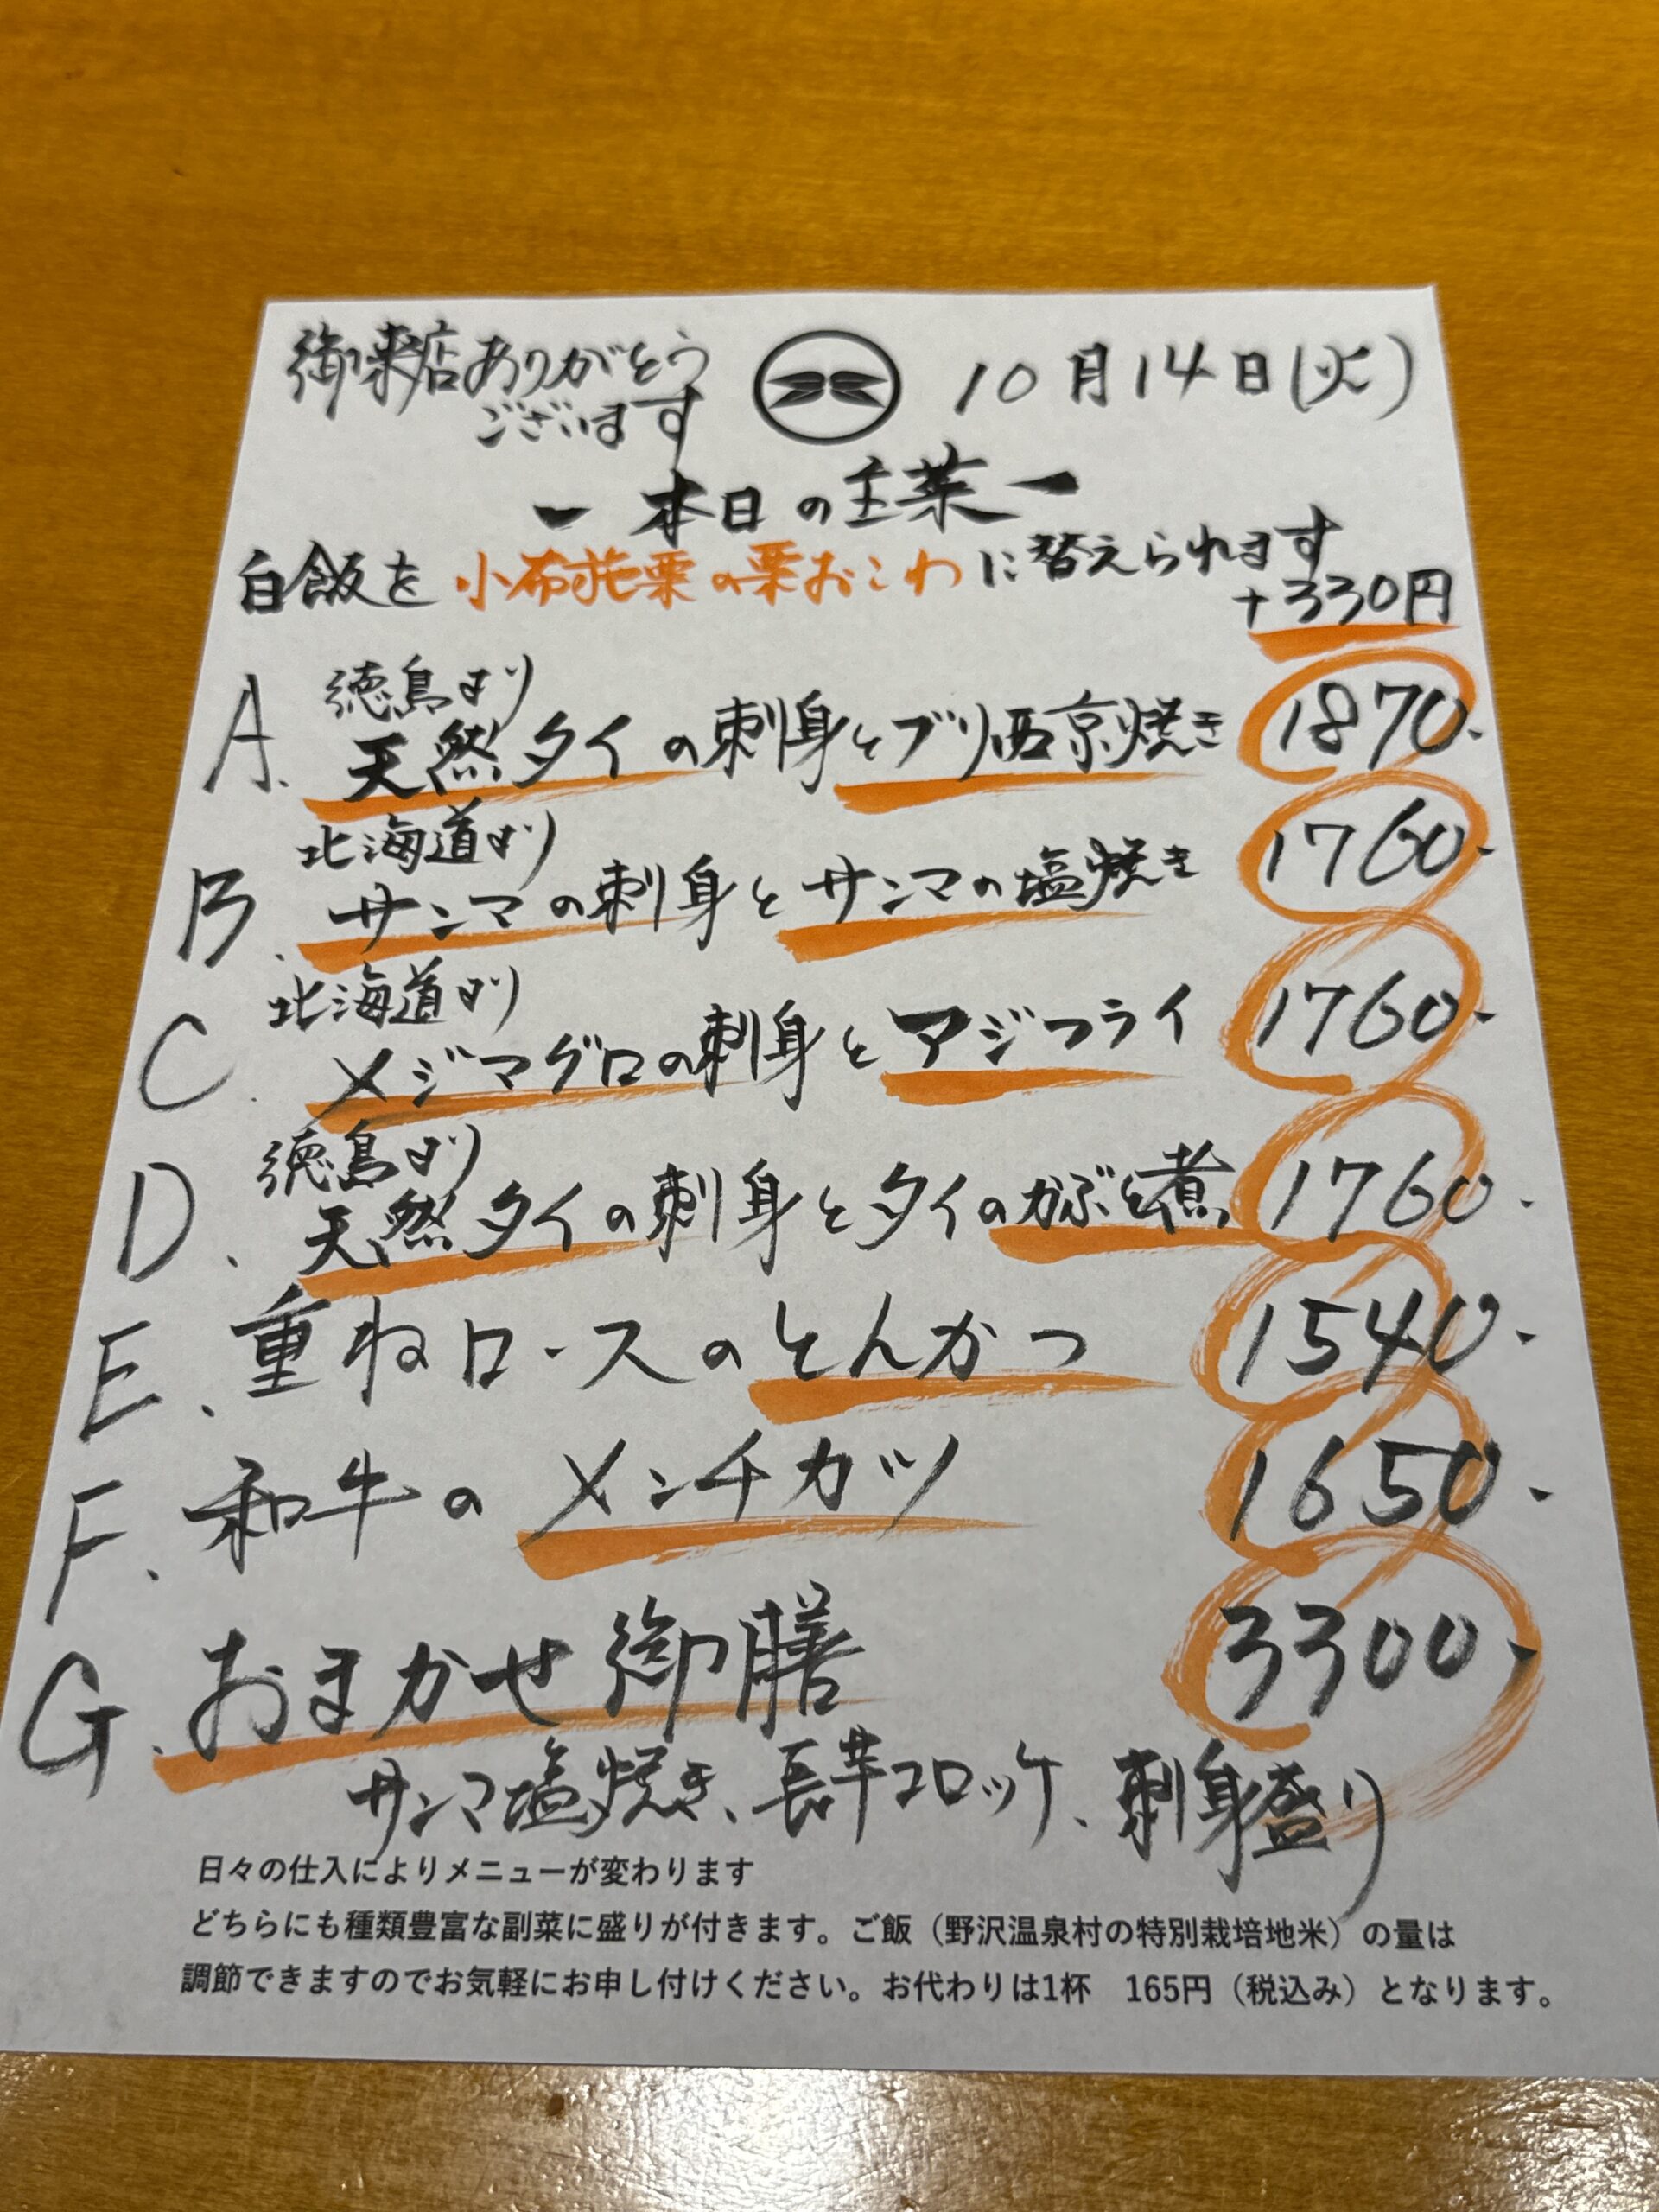 御来店ありがとう
ございます
10月14日(火)
ー本日の主菜ー
白飯を小布施栗の栗おこわに替えられます
+330円
徳島より
A. 天然タイの刺身とブリ西京焼き 1870.-
北海道より
B. サンマの刺身とサンマの塩焼き 1760.-
北海道より
C. メジマグロの刺身とアジフライ 1760.-
徳島より
D. 天然タイの刺身とタイのかぶと煮 1760.-
E. 重ねロースのとんかつ 1540.-
F. 和牛のメンチカツ 1650.-
G. おまかせ御膳 3300.-
サンマ塩焼き、長芋コロッケ、刺身盛り
日々の仕入によりメニューが変わります
どちらにも種類豊富な副菜に盛りが付きます。ご飯（野沢温泉村の特別栽培地米）の量は
調節できますのでお気軽にお申し付けください。お代わりは1杯　165円（税込み）となります。